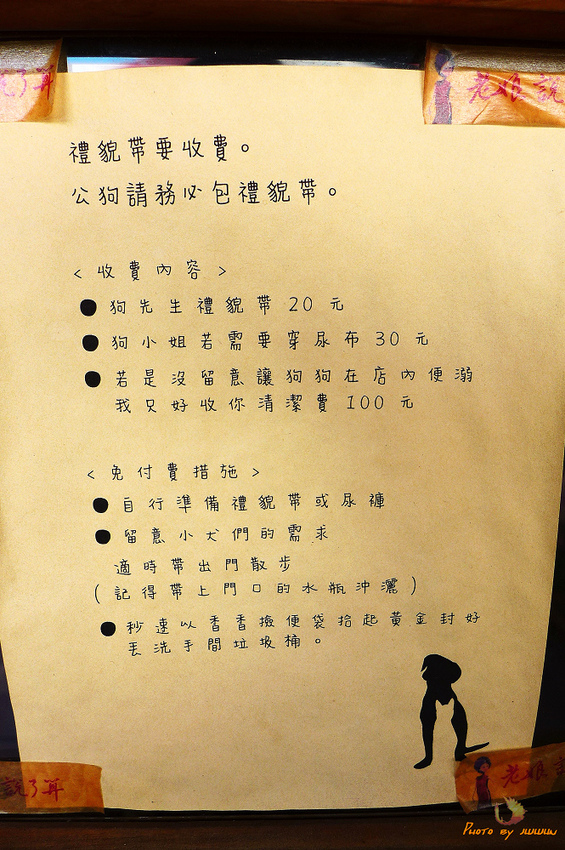 說了算
老娘說
禮貌帶要收費。
公狗請務必包禮貌帶。
< 收費內容 >
● 狗先生禮貌帶 20 元
● 狗小姐若需要穿尿布 30 元
● 若是沒留意讓狗狗在店內便溺
我只好收你清潔費 100 元
< 免付費措施 >
● 自行準備禮貌帶或尿褲
● 留意小犬們的需求
適時帶出門散步
( 記得帶上門口的水瓶沖灑 )
● 秒速以香香撿便袋拾起黃金封好
丟洗手間垃圾桶。
說了算
老娘
PHOTO BY